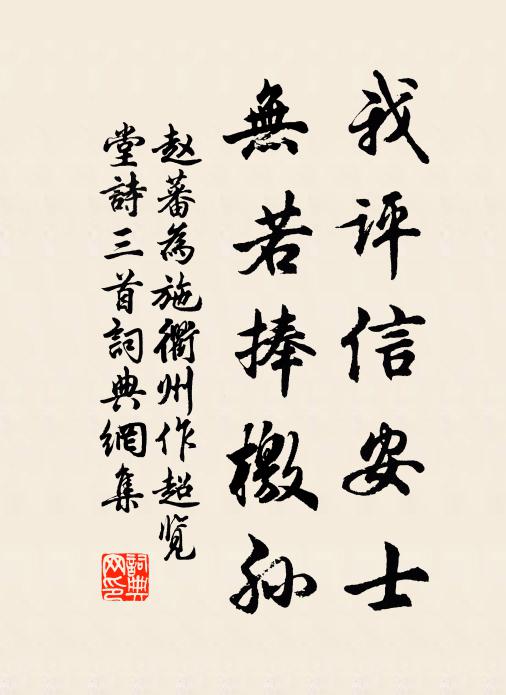 我评信安士
無若捧檄孙
赵蕃為施衢州作超览
堂詩三首詞典網集
詞典网印